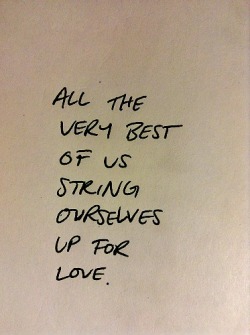 ALL THE
VERY BEST
OF US
STRING
OURSELVES
UP FOR
LOVE.